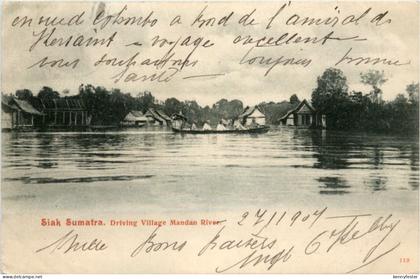 en med Colombo à bord de l'amiral de
Kersaint voyage excellent
vous souhaitons toujours bonne
santé
Siak Sumatra. Driving Village Mandau River.
27/1 1904
Mille Bons baisers
113
bennyfester